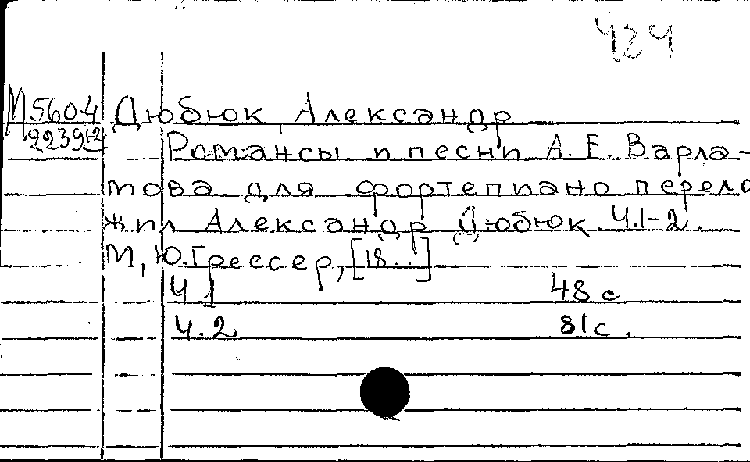 424
М 560-4 Дюбюк, Александр
2239-2 Романсы и песни А.Е. Варла-
мова для фортепиано перело
жил Александр Дюбюк. Ч.1-2.
М, Ю.Грессер, [18..]
Ч 1 48 с
Ч.2 81с.